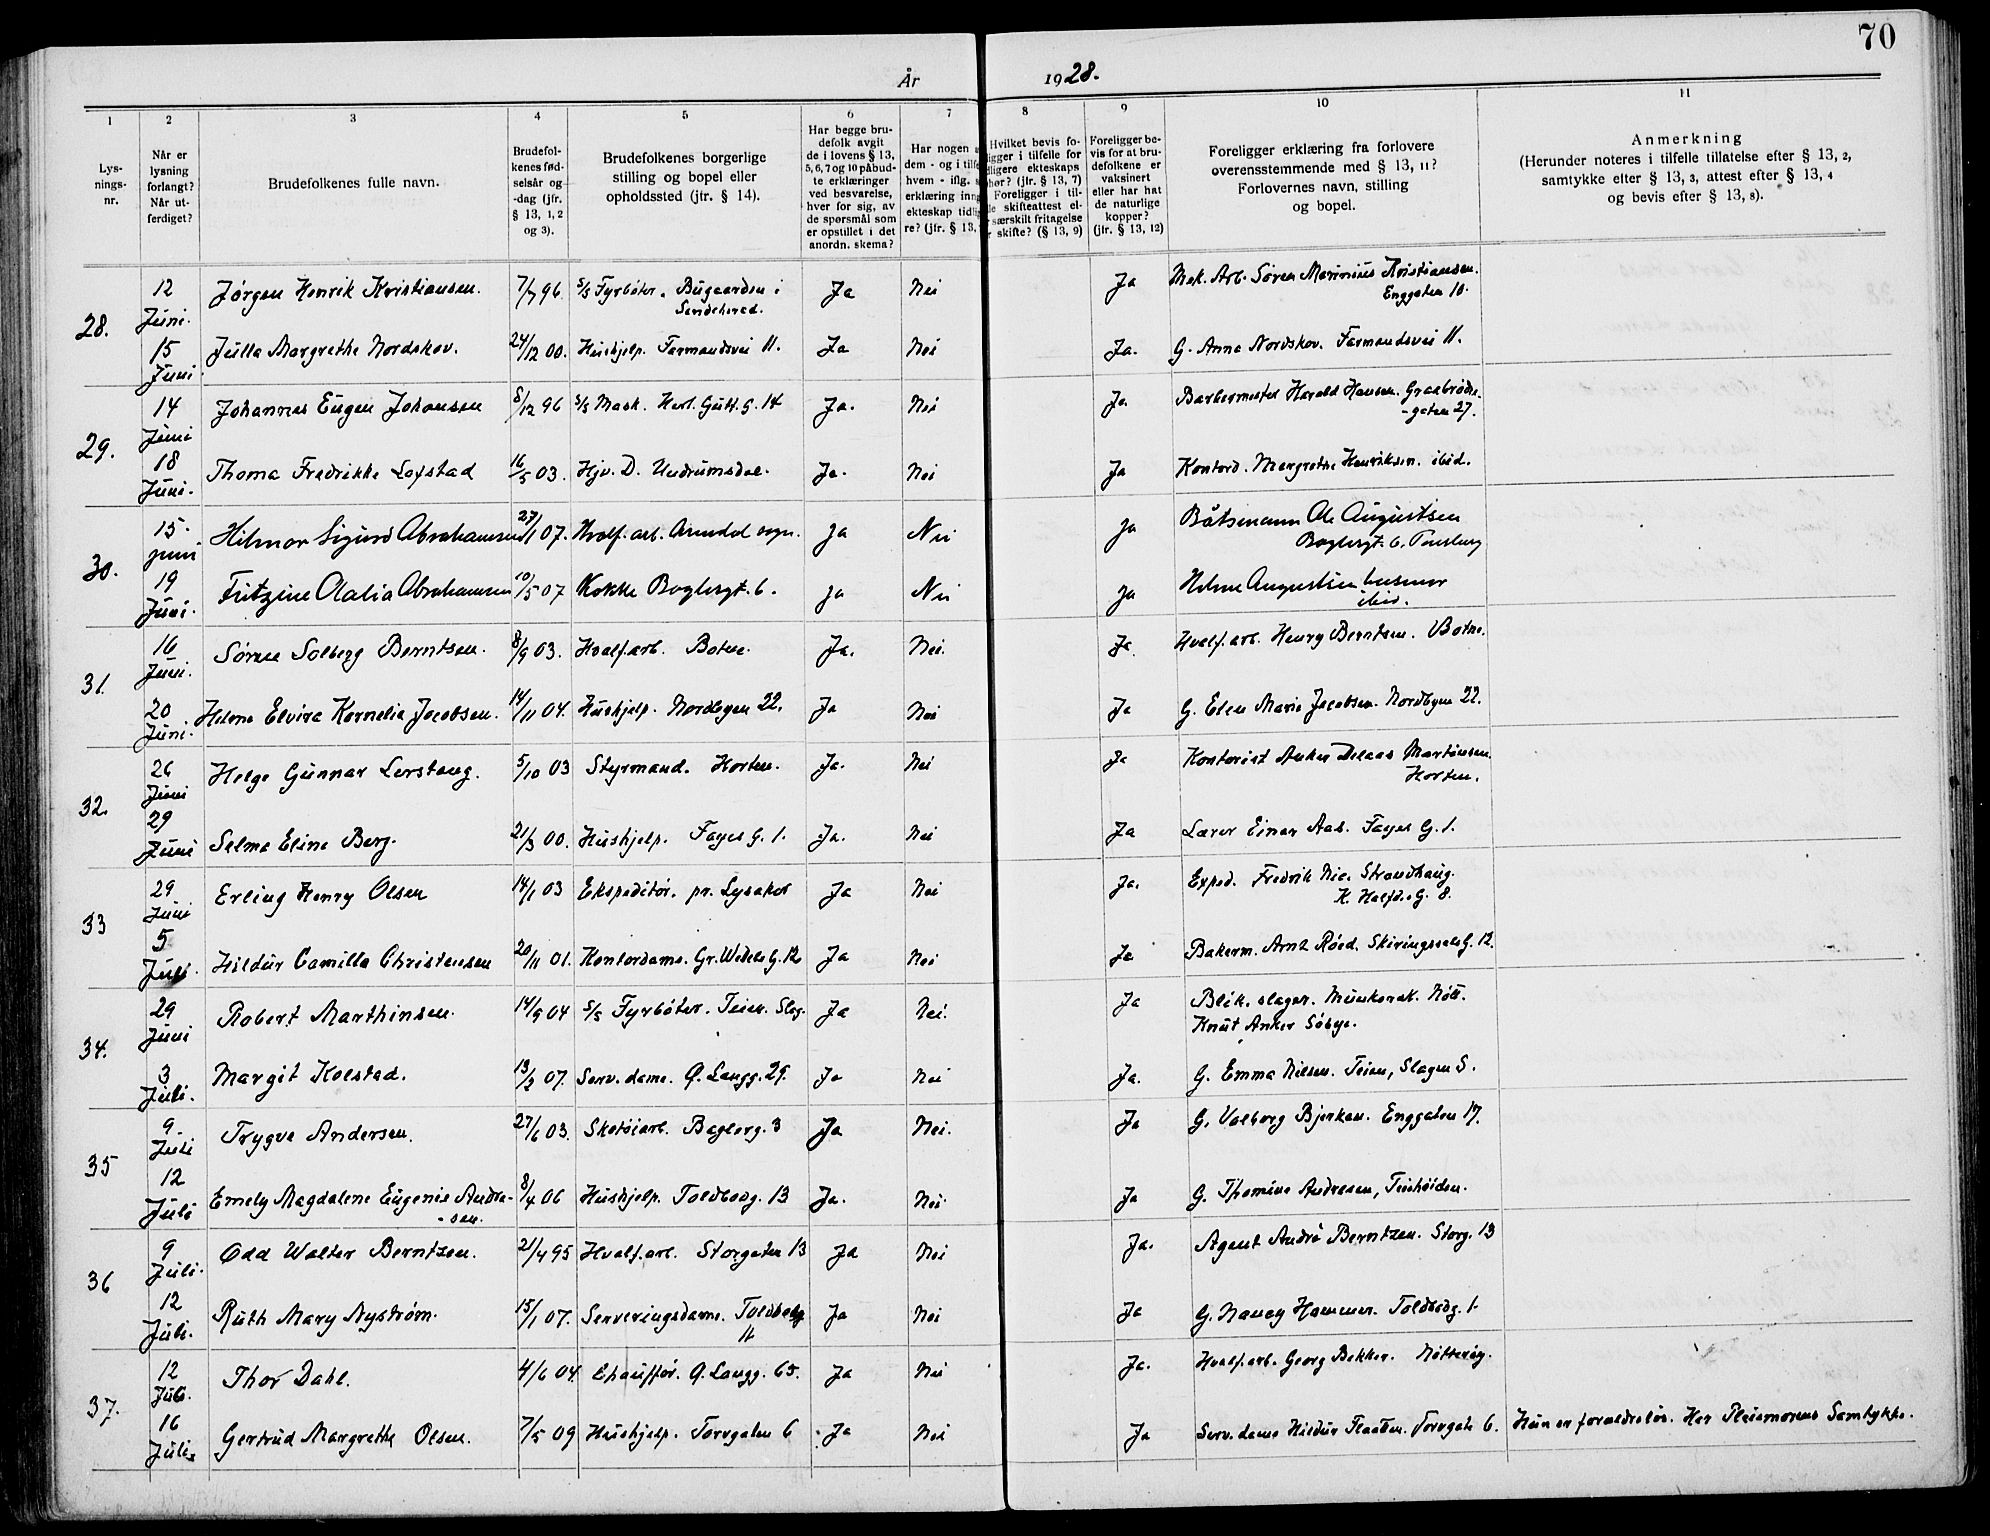 70
År 1928.
1 2 3 4 5 6 7 8 9 10 11
Lys-
nings-
nr.
Når er
lysning
forlangt?
Når ut-
ferdiget?
Brudefolkenes fulle navn.
Brudefol-
kenes fød-
selsår og
-dag (jfr.
§ 13, 1, 2
og 3).
Brudefolkenes borgerlige
stilling og bopel eller
opholdssted (jfr. § 14).
Har begge bru-
defolk avgit
de i lovens § 13,
5, 6, 7 og 10 påbud-
te erklæringer
ved besvarelse,
hver for sig, av
de spørsmål som
er opstillet i det
anordn. skema?
Har nogen
dem - og i tilfe
hvem - iflg.
erklæring inng
ekteskap tidlig
re? (jfr. § 13,
Hvilket bevis fo-
igger i tilfelle for
dligere ekteskaps
hør? (jfr. § 13, 7)
Foreligger i til-
de skifteattest el-
særskilt fritagelse
skifte? (§ 13, 9)
Foreligger be-
vis for at bru-
defolkene er
vaksinert
eller har hat
de naturlige
kopper?
(jfr. § 13, 12)
Foreligger erklæring fra forlovere
overensstemmende med § 13, 11?
Forlovernes navn, stilling
og bopel.
Anmerkning
(Herunder noteres i tilfelle tillatelse efter § 13, 2,
samtykke efter § 13, 3, attest efter § 13, 4
og bevis efter § 13, 8).
28.
12 Juni. Jørgen Henrik Kristiansen. 7/7 96. S/S Fyrbøter. Bugaarden i Ja Nei Ja Mek. Arb. Søren Marinius Kristiansen.
Sandeherred. Enggaten 10.
15 Juni Julla Margrethe Nordskov. 24/12 00. Hushjelp. Farmandsvei 11. Ja Nei Ja. G. Anna Nordskov. Farmandsvei 11.
29.
14 Juni Johannes Eugen Johansen 8/12 96 S/S Mask. Herl. Gutt. G. 14 Ja. Nei Ja Barbermester Harald Hansen. Graabrødre-
-gaten 27.
18 Juni. Thoma Fredrikke Lofstad 16/5 03. Hjv. D. Undrumsdal. Ja. Nei Ja Kontord. Margrethe Henriksen. ibid.
30.
15. juni Hilmar Sigurd Abrahamsen 27/1 07. Hvalf. arb. Arendal sogn. ja Nei ja Båtsmann Ole Augustsen
Baglergt. 6, Tønsberg
19 Juni. Fritzine Olalia Abrahamsen 10/5 07 Kokke Baglergt. 6. ja Nei ja Helene Augustsen husmor
ibid.
31.
16 Juni. Sørine Solberg Berntsen. 8/9 03. Hvalf. arb. Botne. Ja. Nei. Ja Hvalf. arb. Henry Berntsen. Botne.
20 Juni. Helene Elvira Kornelia Jacobsen. 14/11 04. Hushjelp. Nordbyen 22. Ja Nei Ja G. Elen Marie Jacobsen. Nordbyen 22.
32.
26 Juni Helge Gunnar Lerstang. 5/10 03 Styrmand. Horten. Ja. Nei Ja Kontorist Anker Martinsen.
Horten.
29 Juni Selma Eline Berg. 21/3 00. Hushjelp. Fayes G. 1. Ja. Nei Ja Lærer Einar Aas. Fayes G. 1.
33
29 Juni Erling Henry Olsen 14/1 03 Ekspeditør. pr. Lysaker Ja Nei Ja. Exped. Fredrik Nic. Strandhaug.
K. Halfd. G. 8.
5 Juli. Hildur Camilla Christensen 20/11 01. Kontordame. Gr. Wedels G. 12 Ja Nei Ja Bakerm. Arnt Røed. Skiringssals G. 12.
34.
29 Juni Robert Marthinsen. 14/9 04 S/S Fyrbøter. Teien. Slag. Ja Nei. Ja Blik. slager. Munkerek. Nøtt.
Knut Anker Søbye.
3 Juli. Margit Kolstad. 13/2 07. Serv. dame. Ø. Langg. 29. Ja Nei Ja. G. Emma Nilsen. Teien, Slagen S.
35
9 Juli Trygve Andersen. 27/6 03. Skotøiarb. Baglerg. 3 Ja Nei. Ja G. Valborg Bjerkan. Enggaten 17.
12 Juli Emely Magdalene Eugenie Andrea- 8/4 06 Hushjelp. Toldbodg. 13 Ja. Nei Ja G. Thomine Andresen, Teiehöiden.
-sen.
36
9 Juli. Odd Walter Berntzen. 21/4 95 Hvalf. arb. Storgaten 13 Ja Nei Ja. Agent André Berntzen. Storg. 13
12 Juli. Ruth Mary Nystrøm. 15/1 07. Serveringsdame. Toldbodg Ja Nei Ja G. Nancy Hammer. Toldbodg. 1.
11
37.
12 Juli. Thor Dahl. 4/6 04. Chauffør. Ø. Langg. 65. Ja Nei Ja. Hvalf. arb. Georg Bekker. Nøtterøy.
16 Juli Gertrud Margrethe Olsen. 7/5 09 Hushjelp. Torvgaten 6 Ja Nei Ja Serv. dame Hildur Flaaten. Torvgate 6. Hun er forældreløs. Har Pleiemorens Samtykke.